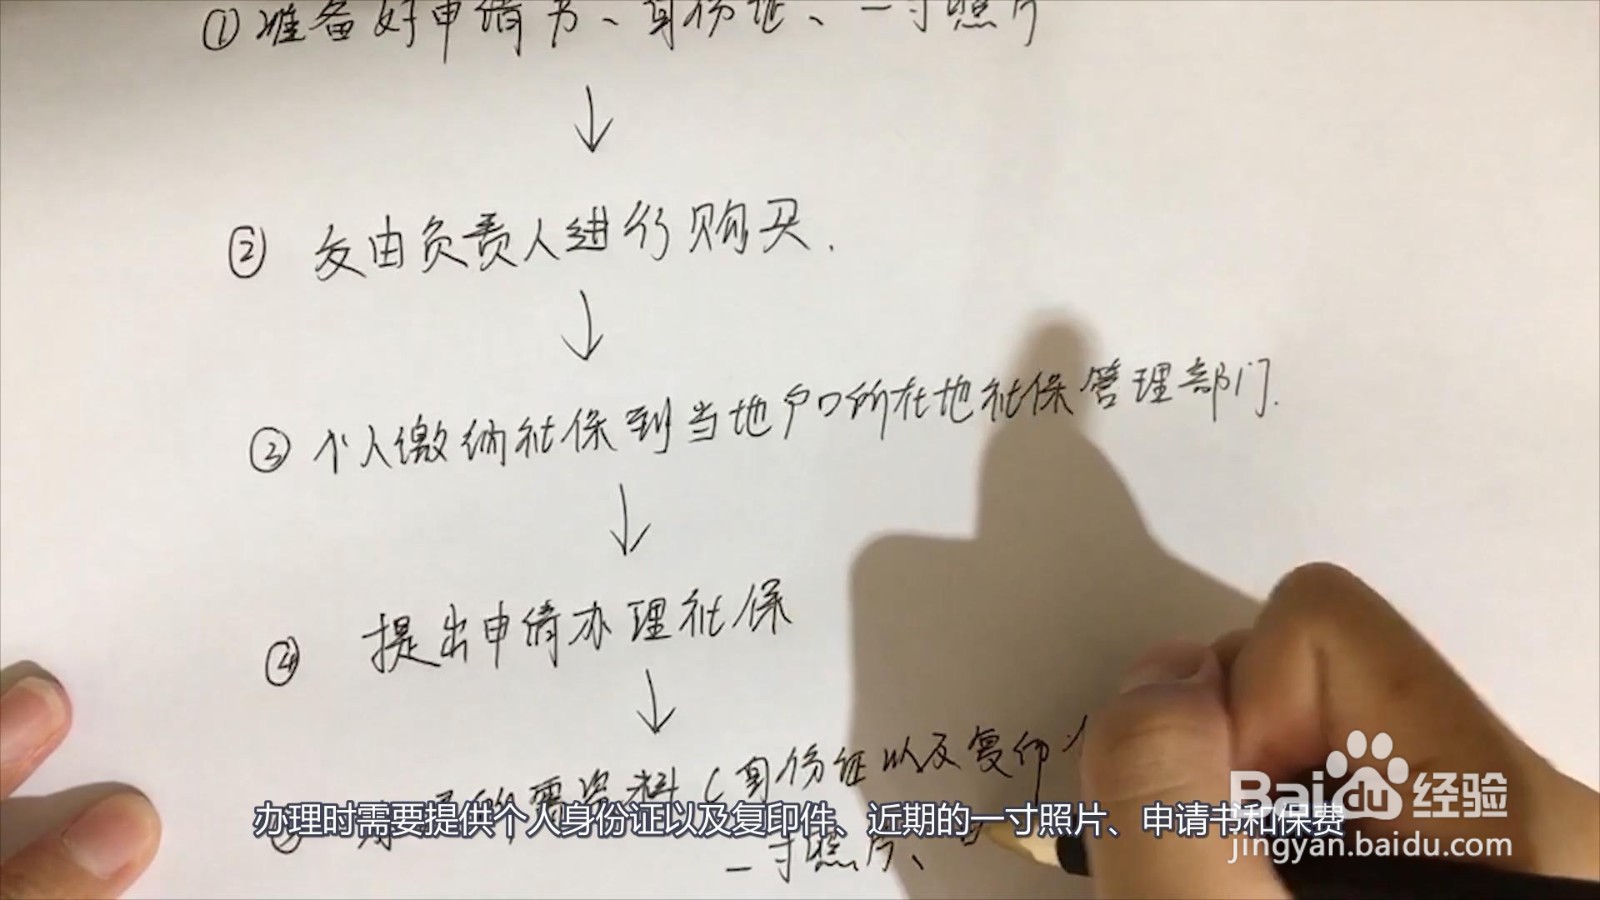 ①准备好申请书、身份证、一寸照片
② 交由负责人进行购买.
③ 个人缴纳社保到当地户口所在地社保管理部门.
④ 提出申请办理社保
需资料(身份证以及复印
一寸照片、
办理时需要提供个人身份证以及复印件、近期的一寸照片、申请书和保费
Bai 经验
jingyan.baidu.com